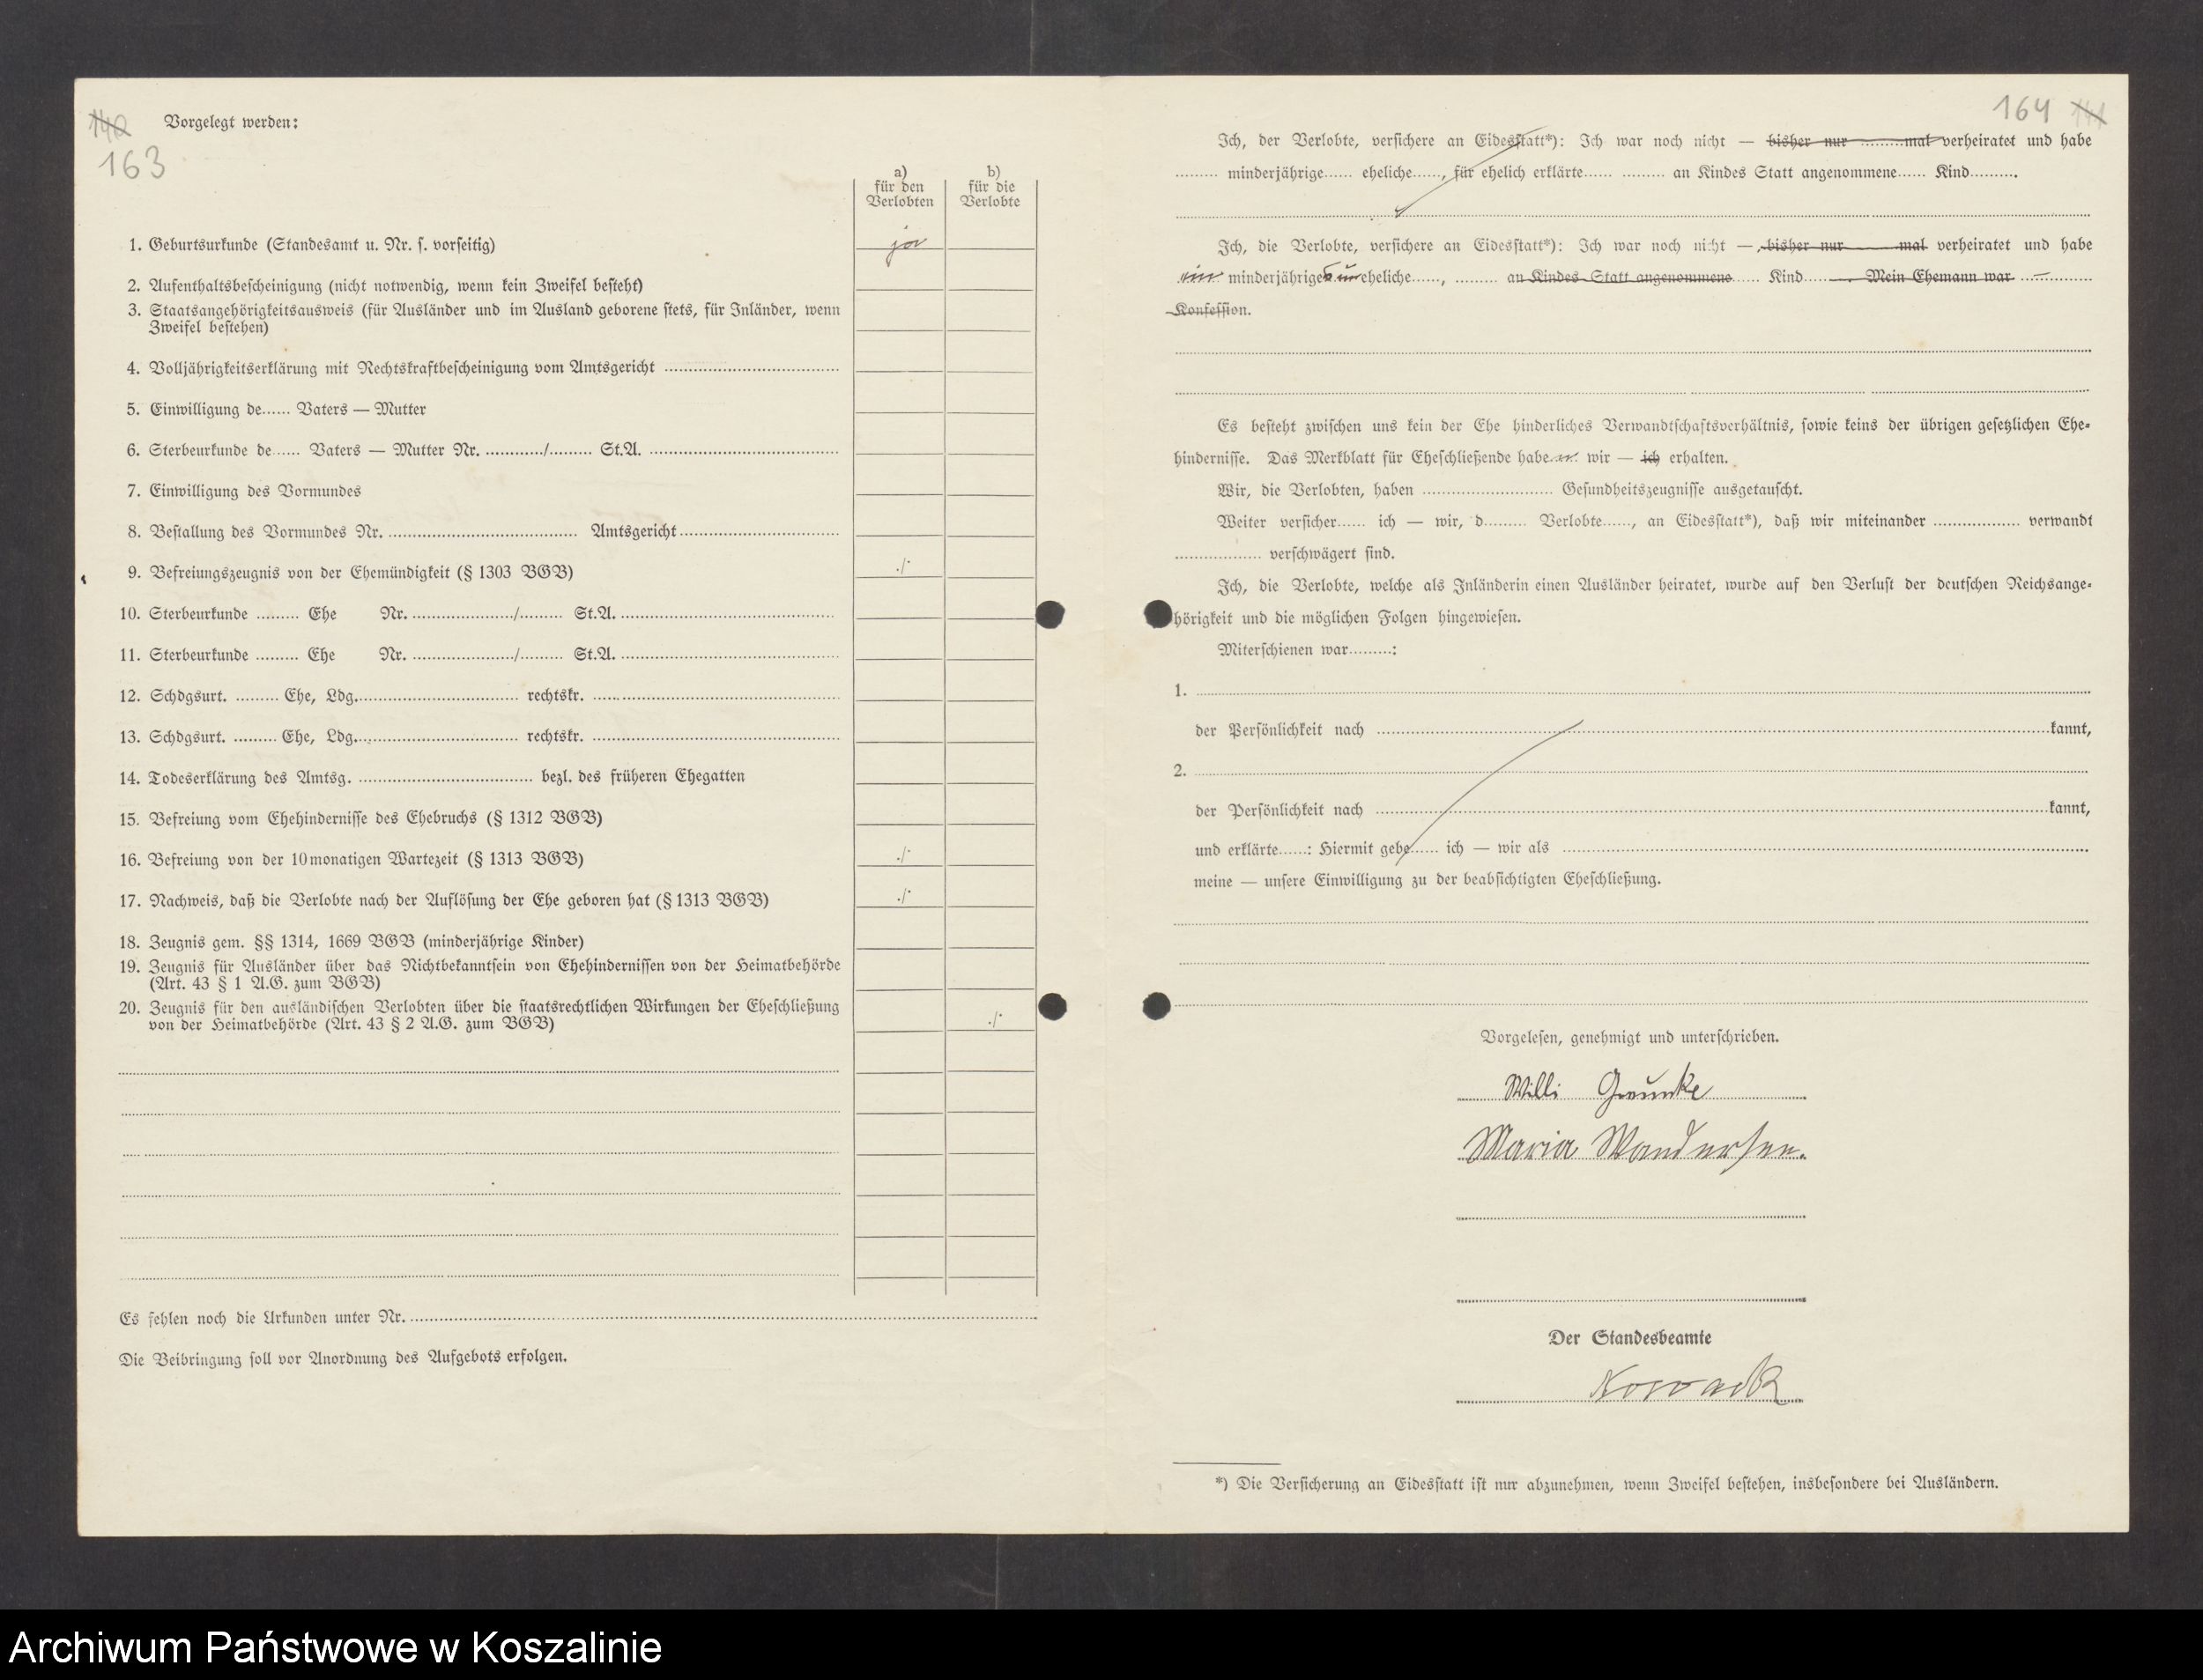 163
Vorgelegt werden:
a)
für den
Verlobten
b)
für die
Verlobte
1. Geburtsurkunde (Standesamt u. Nr. s. vorseitig) ja
2. Aufenthaltsbescheinigung (nicht notwendig, wenn kein Zweifel besteht)
3. Staatsangehörigkeitsausweis (für Ausländer und im Ausland geborene stets, für Inländer, wenn
Zweifel bestehen)
4. Volljährigkeitserklärung mit Rechtskraftbescheinigung vom Amtsgericht ........
5. Einwilligung de...... Vaters — Mutter
6. Sterbeurkunde de...... Vaters — Mutter Nr. ............/......... St.A. ........
7. Einwilligung des Vormundes
8. Bestallung des Vormundes Nr. ........ Amtsgericht ........
9. Befreiungszeugnis von der Ehemündigkeit (§ 1303 BGB) ./.
10. Sterbeurkunde ......... Ehe Nr. ......../......... St.A. ........
11. Sterbeurkunde ......... Ehe Nr. ......../......... St.A. ........
12. Schdgsurt. ......... Ehe, Ldg. ........ rechtskr. ........
13. Schdgsurt. ......... Ehe, Ldg. ........ rechtskr. ........
14. Todeserklärung des Amtsg. ........ bezl. des früheren Ehegatten
15. Befreiung vom Ehehindernisse des Ehebruchs (§ 1312 BGB)
16. Befreiung von der 10monatigen Wartezeit (§ 1313 BGB) ./.
17. Nachweis, daß die Verlobte nach der Auflösung der Ehe geboren hat (§ 1313 BGB) ./.
18. Zeugnis gem. §§ 1314, 1669 BGB (minderjährige Kinder)
19. Zeugnis für Ausländer über das Nichtbekanntsein von Ehehindernissen von der Heimatbehörde
(Art. 43 § 1 A.G. zum BGB)
20. Zeugnis für den ausländischen Verlobten über die staatsrechtlichen Wirkungen der Eheschließung
von der Heimatbehörde (Art. 43 § 2 A.G. zum BGB) ./.
Es fehlen noch die Urkunden unter Nr. ........
Die Beibringung soll vor Anordnung des Aufgebots erfolgen.
164
Ich, der Verlobte, versichere an Eidesstatt*): Ich war noch nicht — bisher nur ......... mal verheiratet und habe
......... minderjährige...... eheliche......, für ehelich erklärte...... ......... an Kindes Statt angenommene...... Kind..........
Ich, die Verlobte, versichere an Eidesstatt*): Ich war noch nicht —, bisher nur ......... mal verheiratet und habe
ein minderjähriges uneheliche......, ......... an Kindes Statt angenommene...... Kind.......... Mein Ehemann war ...—...
Konfession.
Es besteht zwischen uns kein der Ehe hinderliches Verwandtschaftsverhältnis, sowie keins der übrigen gesetzlichen Ehe-
hindernisse. Das Merkblatt für Eheschließende habe..n. wir — ich erhalten.
Wir, die Verlobten, haben ........ Gesundheitszeugnisse ausgetauscht.
Weiter versicher...... ich — wir, d......... Verlobte......, an Eidesstatt*), daß wir miteinander ........ verwandt
........ verschwägert sind.
Ich, die Verlobte, welche als Inländerin einen Ausländer heiratet, wurde auf den Verlust der deutschen Reichsange-
hörigkeit und die möglichen Folgen hingewiesen.
Miterschienen war.........:
1. ........
der Persönlichkeit nach ........kannt,
2. ........
der Persönlichkeit nach ........kannt,
und erklärte......: Hiermit gebe...... ich — wir als ........
meine — unsere Einwilligung zu der beabsichtigten Eheschließung.
Vorgelesen, genehmigt und unterschrieben.
Willi Graunke
Maria Wandersee.
Der Standesbeamte
Nowack
*) Die Versicherung an Eidesstatt ist nur abzunehmen, wenn Zweifel bestehen, insbesondere bei Ausländern.
Archiwum Państwowe w Koszalinie